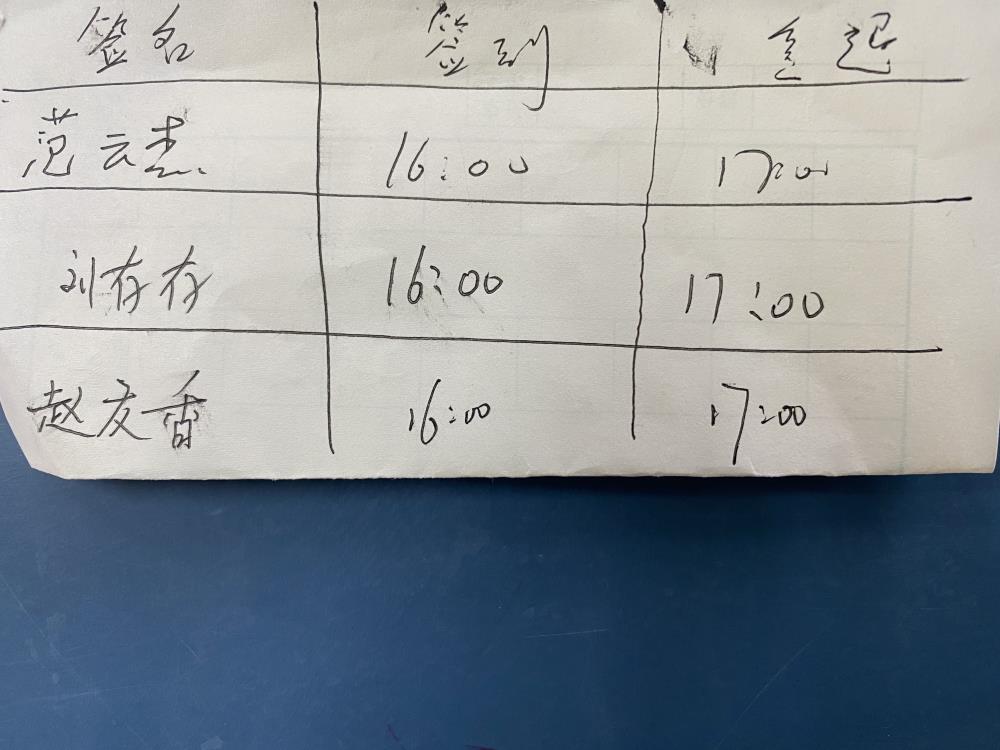 签名 签到
范云杰 16:00 17:00
刘存存 16:00 17:00
赵友香 16:00 17:00